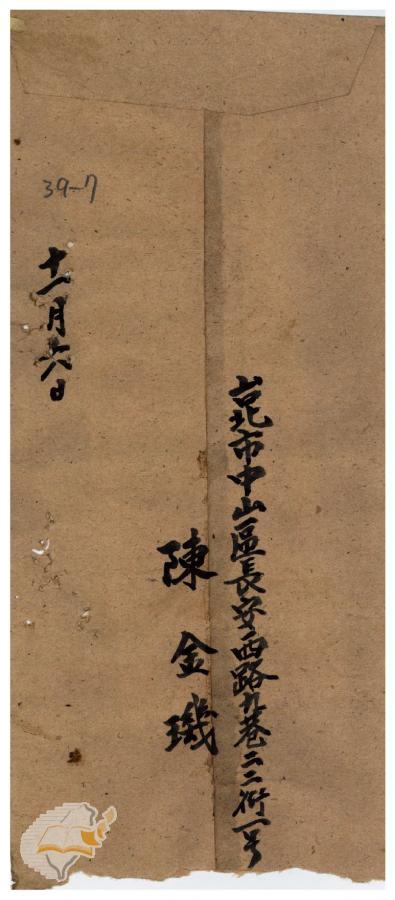 台北市中山區長安西路九巷二二衖一号
陳金璣
十一月六日
39-7